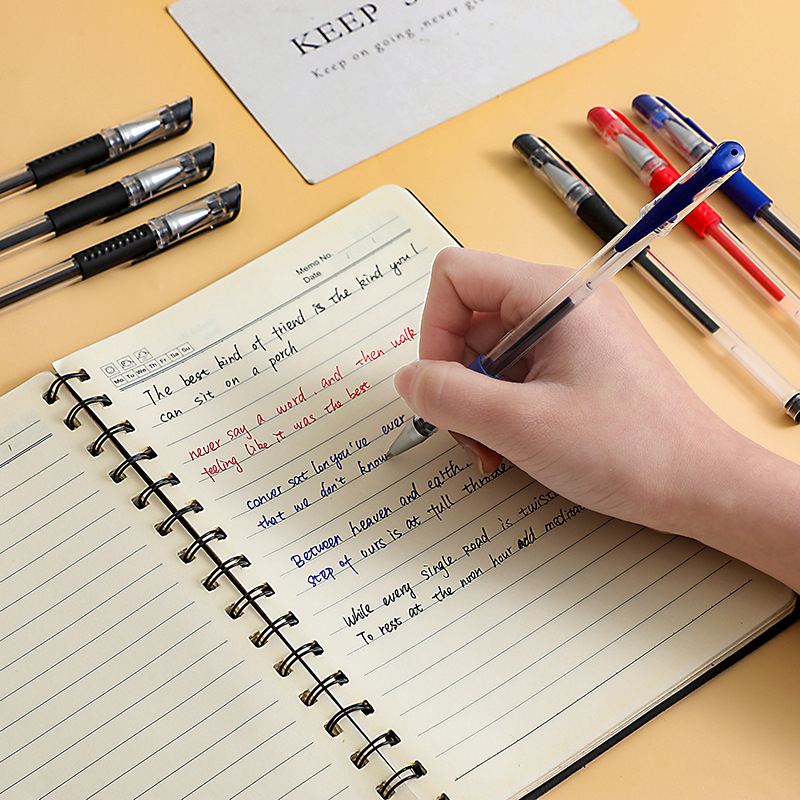 KEEP
Keep on going never gi
Memo No.
Date / /
Mo Tu We Th Fr Sa Su
The best kind of friend is the kind you!
can sit on a porch
never say a word, and then walk
feeling like it was the best
conver sat lon you've ever
that we don't know
Between heaven and earth.
step of ours is at full throttle
While every single Road is twist
To rest at the noon hour Add medita